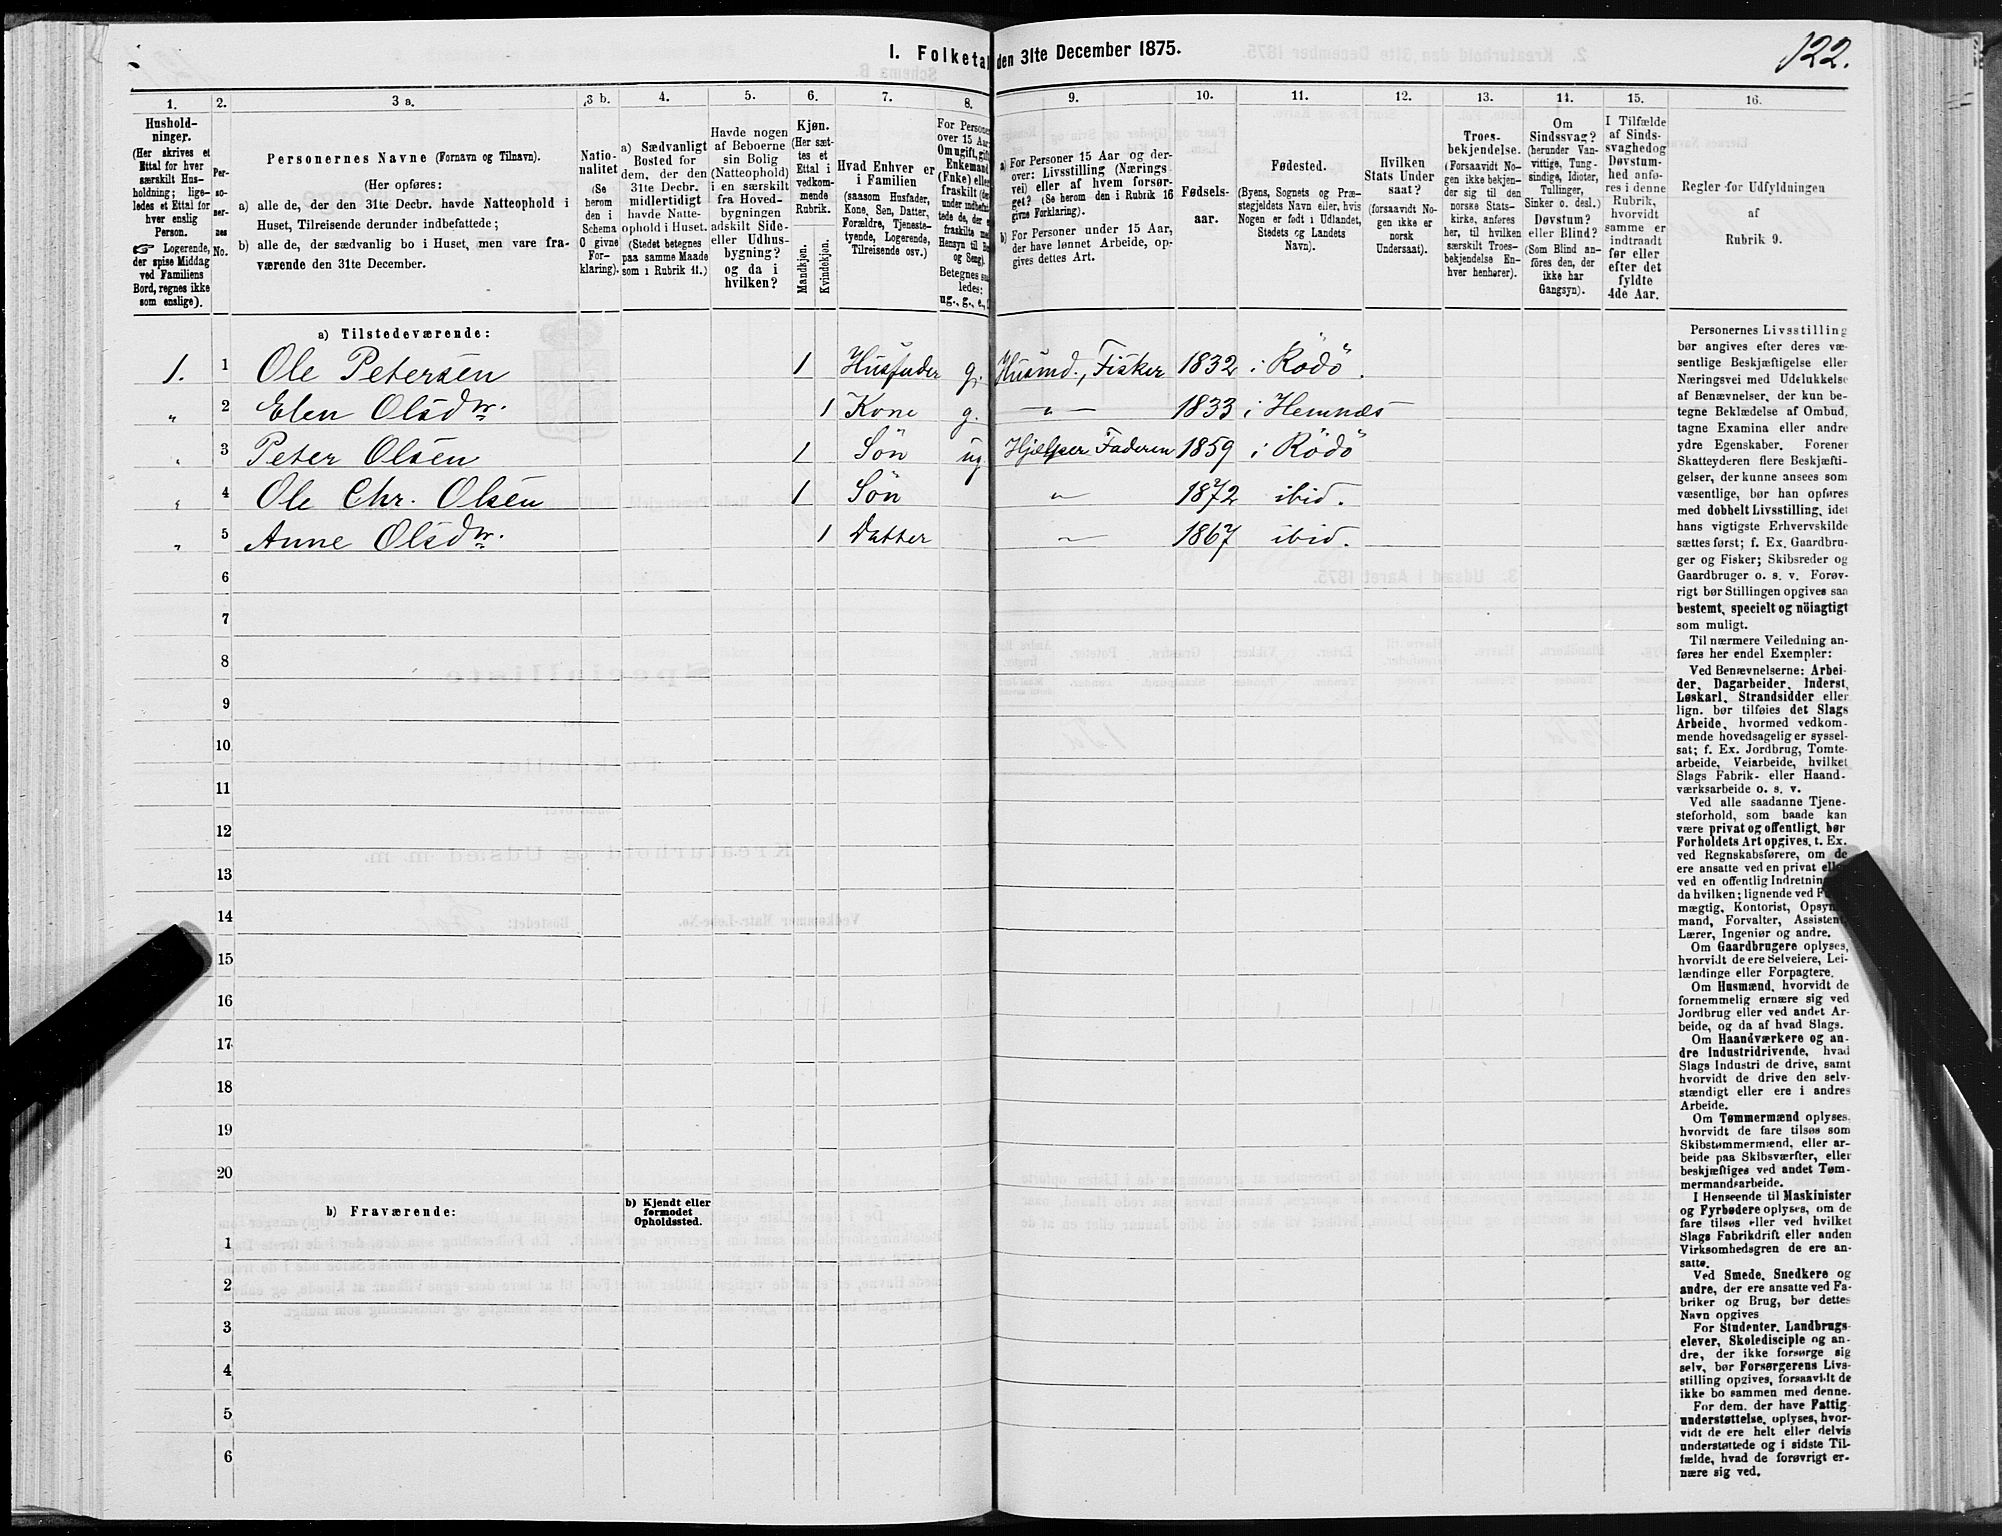 1. Folketal den 31te December 1875.
122.
1.
2.
3 a.
3 b.
4.
5.
6.
7.
8.
9.
10.
11.
12.
13.
14.
15.
16.
Hushold-
ninger.
(Her skrives et
Ettal for hver
særskilt Hus-
holdning; lige-
ledes et Ettal for
hver enslig
Person.
☞ Logerende,
der spise Middag
ved Familiens
Bord, regnes ikke
som enslige).
Per-
so-
ner-
nes
No.
Personernes Navne (Fornavn og Tilnavn).
(Her opføres:
a) alle de, der den 31te Decbr. havde Natteophold i
Huset, Tilreisende derunder indbefattede;
b) alle de, der sædvanlig bo i Huset, men vare fra-
værende den 31te December.
Natio-
nalitet
(Se
herom
den i
Schema
O givne
For-
klaring).
a) Sædvanligt
Bosted for
dem, der den
31te Decbr.
midlertidigt
havde Natte-
ophold i Huset.
(Stedet betegnes
paa samme Maade
som i Rubrik 11.)
Havde nogen
af Beboerne
sin Bolig
(Natteophold)
i en særskilt
fra Hoved-
bygningen
adskilt Side-
eller Udhus-
bygning?
og da i
hvilken?
Kjøn.
(Her sæt-
tes et
Ettal i
vedkom-
mende
Rubrik.
Mandkjøn.
Kvindekjøn.
Hvad Enhver er
i Familien
(saasom Husfader,
Kone, Søn, Datter,
Forældre, Tjeneste-
tyende, Logerende,
Tilreisende osv.)
For Personer
over 15 Aar:
Om ugift, gift,
Enkemand
(Enke) eller
fraskilt
Betegnes saa
ledes:
ug., g., e.,
a) For Personer 15 Aar og der-
over: Livsstilling (Nærings
vei) eller af hvem forsør-
get? (Se herom den i Rubrik 16
givne Forklaring).
b) For Personer under 15 Aar,
der have lønnet Arbeide, op-
gives dettes Art.
Fødsels-
aar.
Fødested.
(Byens, Sognets og Præ-
stegjeldets Navn eller, hvis
Nogen er født i Udlandet,
Stedets og Landets
Navn).
Hvilken
Stats Under
saat?
(forsaavidt No-
gen ikke er
norsk
Undersaat).
Troes-
bekjendelse.
(Forsaavidt No-
gen ikke bekjen-
der sig til den
norske Stats-
kirke, anføres
her, til hvilken
særskilt Troes-
bekjendelse En-
hver henhører).
Om
Sindssvag?
(herunder Van-
vittige, Tung-
sindige, Idioter,
Tullinger,
Sinker o. desl.)
Døvstum?
eller Blind?
(Som Blind an-
føres den, der
ikke har
Gangsyn).
I Tilfælde
af Sinds-
svaghed og
Døvstum-
hed anfø-
res i denne
Rubrik,
hvorvidt
samme er
indtraadt
før eller
efter det
fyldte
4de Aar.
Regler for Udfyldningen
af
Rubrik 9.
a) Tilstedeværende:
1. 1 Ole Petersen 1 Husfader g. Husmd., Fisker 1832 i Rödö.
" 2 Elen Olsdtr. 1 Kone g. —"— 1833 i Hemnæs
" 3 Peter Olsen 1 Sön ug. Hjælper Faderen 1859 i Rödö
" 4 Ole Chr. Olsen 1 Sön " 1872 ibid.
" 5 Anne Olsdtr. 1 Datter " 1867 ibid.
6
7
8
9
10
11
12
13
14
15
16
17
18
19
20
b) Fraværende:
b) Kjendt eller
formodet
Opholdssted.
1
2
3
4
5
6
Personernes Livsstilling
bør angives efter deres væ-
sentlige Beskjæftigelse eller
Næringsvei med Udelukkelse
af Benævnelser, der kun be-
tegne Beklædelse af Ombud,
tagne Examina eller andre
ydre Egenskaber. Forener
Skatteyderen flere Beskjæfti-
gelser, der kunne ansees som
væsentlige, bør han opføres
med dobbelt Livsstilling, idet
hans vigtigste Erhvervskilde
sættes først; f. Ex. Gaardbru-
ger og Fisker; Skibsreder og
Gaardbruger o. s. v. Forøv-
rigt bør Stillingen opgives saa
bestemt, specielt og nöiagtigt
som muligt.
Til nærmere Veiledning an-
føres her endel Exempler:
Ved Benævnelserne: Arbei-
der, Dagarbeider, Inderst,
Løskarl, Strandsidder eller
lign. bør tilføies det Slags
Arbeide, hvormed vedkom-
mende hovedsagelig er syssel-
sat; f. Ex. Jordbrug, Tomte-
arbeide, Veiarbeide, hvilket
Slags Fabrik- eller Haand-
værksarbeide o. s. v.
Ved alle saadanne Tjene-
steforhold, som baade kan
være privat og offentligt, bør
Forholdets Art opgives, t. Ex.
ved Regnskabsførere, om de
ere ansatte ved en privat eller
ved en offentlig Indretning
da hvilken; lignende ved
mægtig, Kontorist, Opsyns-
mand, Forvalter, Assistent,
Lærer, Ingeniør og andre.
Om Gaardbrugere oplyses,
hvorvidt de ere Selveiere, Lei-
lændinge eller Forpagtere.
Om Husmænd, hvorvidt de
fornemmelig ernære sig ved
Jordbrug eller ved andet Ar-
beide, og da af hvad Slags.
Om Haandværkere og an-
dre Industridrivende, hvad
Slags Industri de drive, samt
hvorvidt de drive den selv-
stændigt eller ere i andres
Arbeide.
Om Tømmermænd oplyses,
hvorvidt de fare tilsøs som
Skibstømmermænd, eller ar-
beide paa Skibsværfter, eller
beskjæftiges ved andet Tøm-
mermandsarbeide.
I Henseende til Maskinister
og Fyrbødere oplyses, om de
fare tilsøs eller ved hvilket
Slags Fabrikdrift eller anden
Virksomhedsgren de ere an-
satte.
Ved Smede, Snedkere og
andre, der ere ansatte ved Fa-
briker og Brug, bør dettes
Navn opgives
For Studenter, Landbrugs-
elever, Skoledisciple og an-
dre, der ikke forsørge sig
selv, bør Forsørgerens Livs-
stilling opgives, forsaavidt de
ikke bo sammen med denne.
For dem, der have Fattig-
understøttelse, oplyses, hvor-
vidt de ere helt eller delvis
understøttede og i sidste Til-
fælde, hvad de forøvrigt er-
nære sig ved.